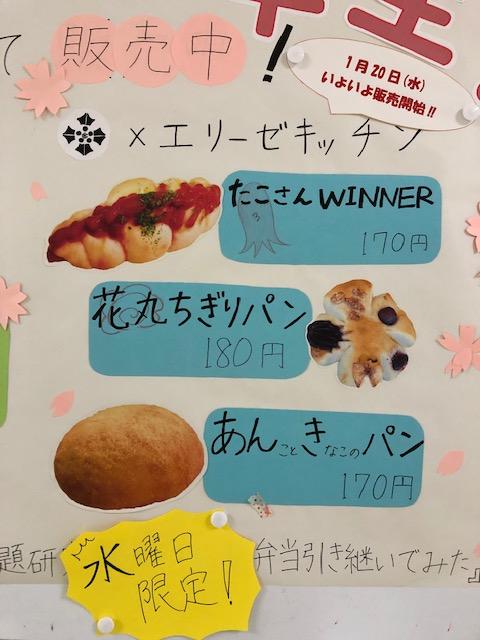 て販売中!
1月20日(水)
いよいよ販売開始!!
×エリーゼキッチン
たこさんWINNER
170円
花丸ちぎりパン
180円
あんことききなこのパン
170円
題研
弁当引き継いでみた』
水曜日
限定!